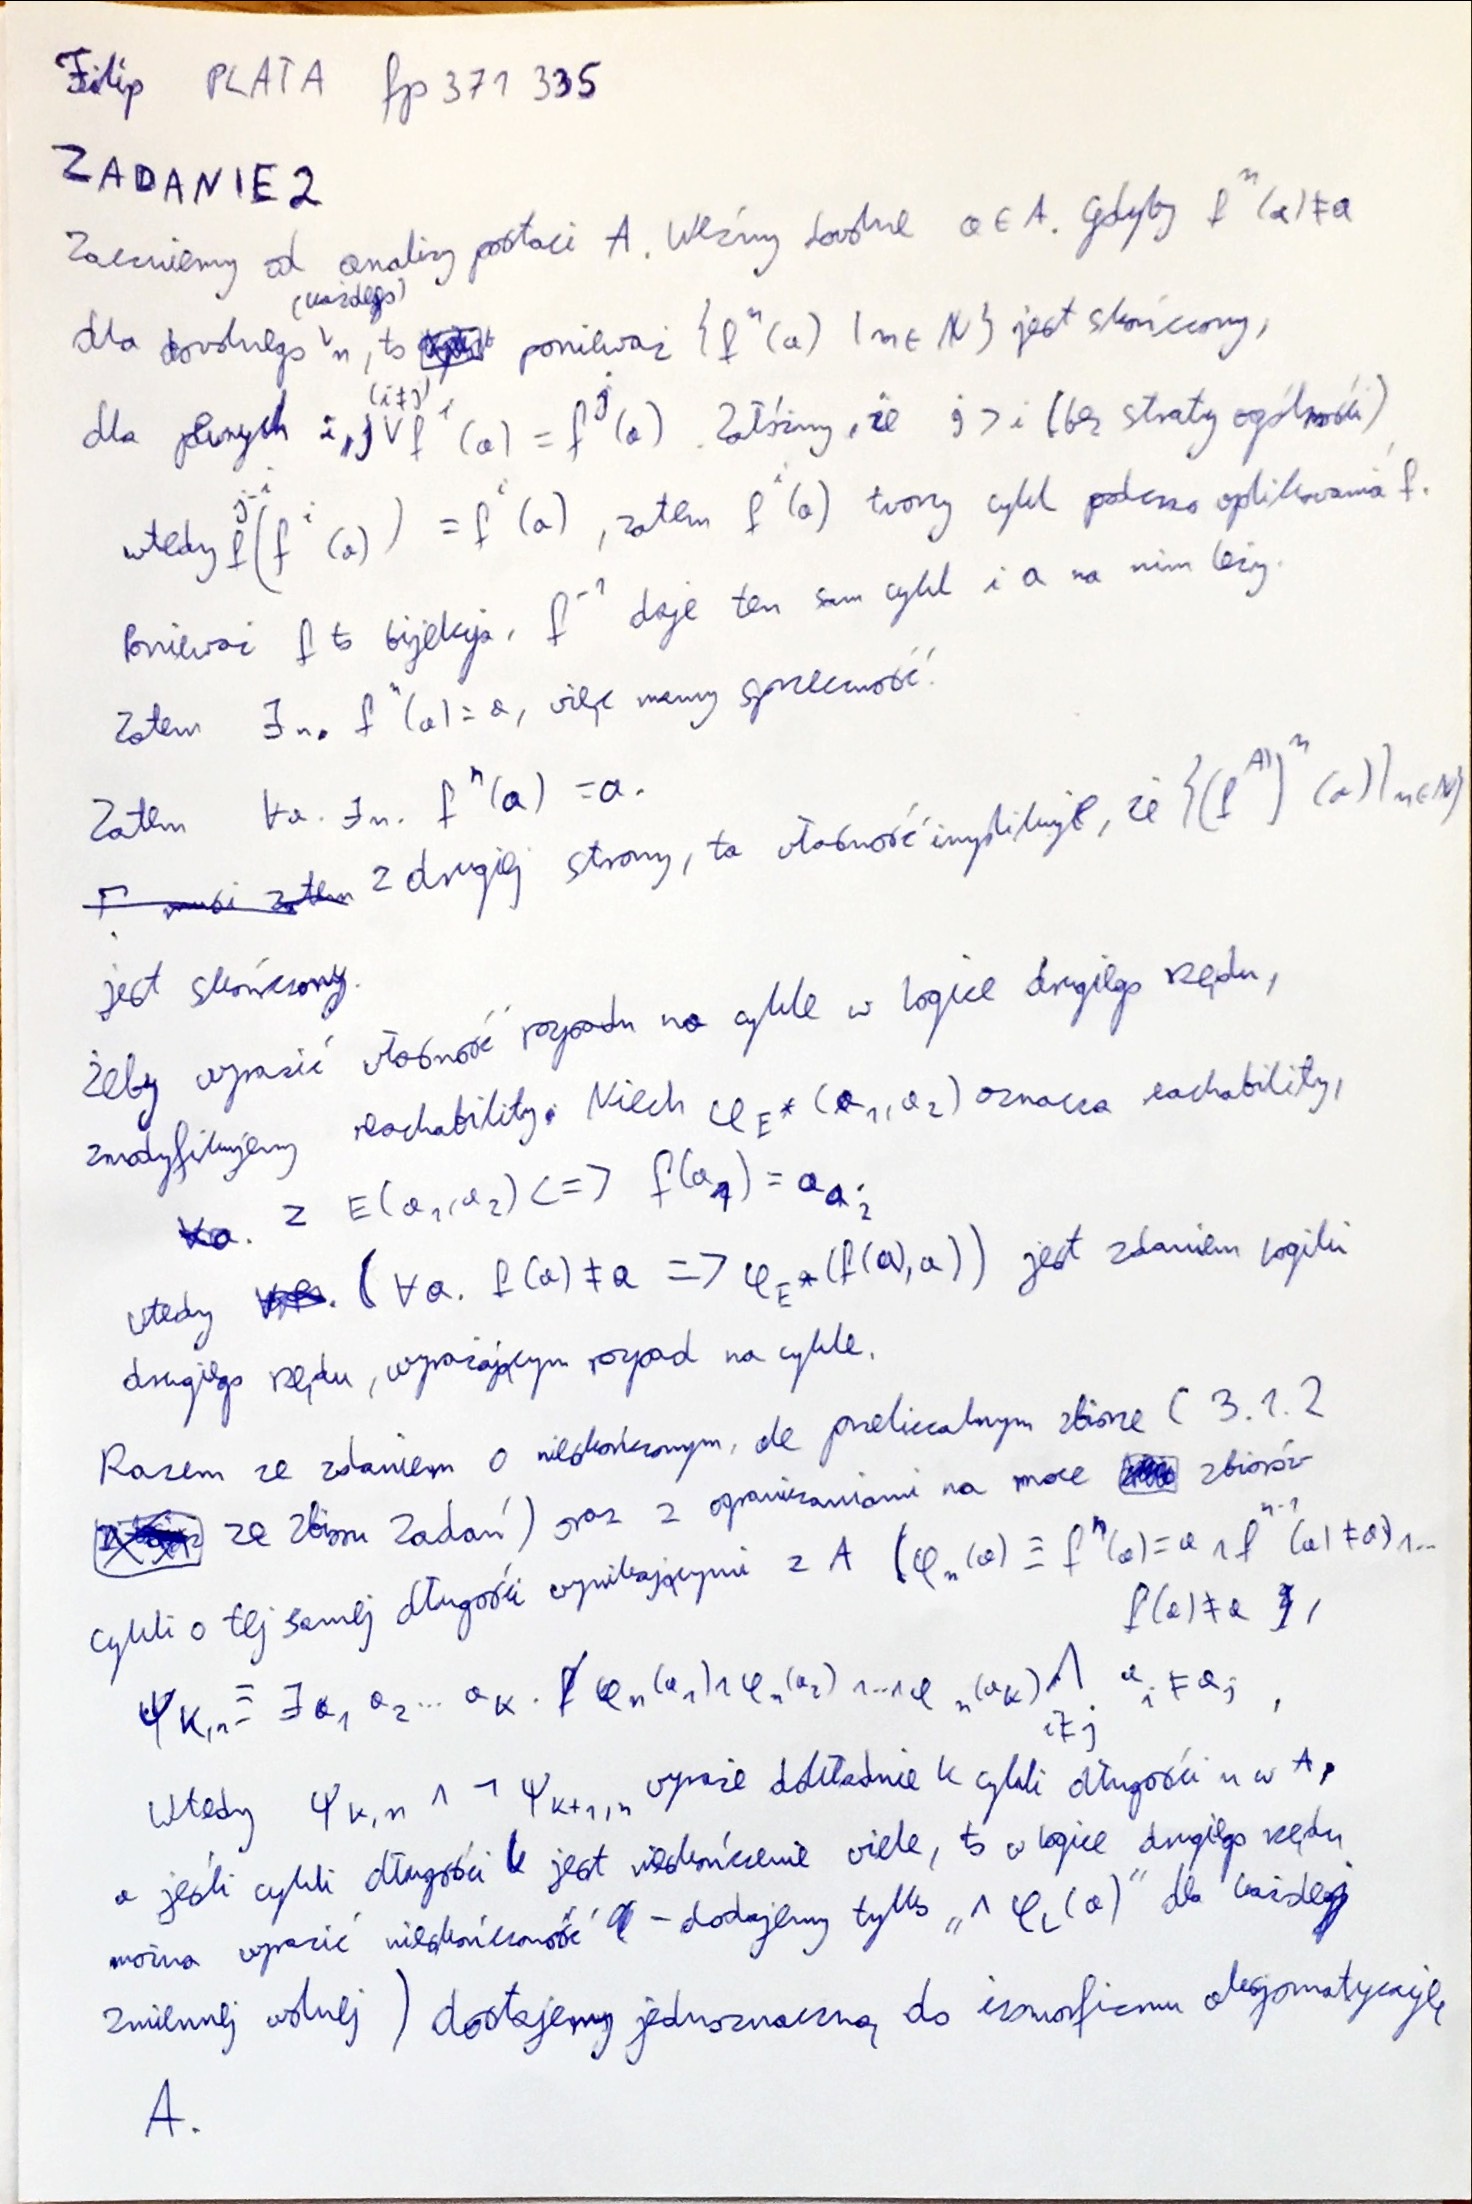 Filip PLATA fp371335
ZADANIE 2
Zaczniemy od analizy postaci A. Weźmy dowolne a ∈ A. Gdyby fⁿ(a) ≠ a
(każdego)
dla dowolnego n, to ponieważ {fⁿ(a) | n ∈ N} jest skończony,
(i≠j)
dla pewnych i, j fⁱ(a) = fʲ(a). Załóżmy, że j > i (bez straty ogólności)
wtedy fʲ⁻ⁱ(fⁱ(a)) = fⁱ(a), zatem fⁱ(a) tworzy cykl podczas aplikowania f.
Ponieważ f to bijekcja, f⁻¹ daje ten sam cykl i a na nim leży.
Zatem ∃n. fⁿ(a) = a, więc mamy sprzeczność.
Zatem ∀a. ∃n. fⁿ(a) = a.
Γ musi zatem z drugiej strony, ta własność implikuje, że {(f^A)ⁿ(a) | n∈N}
jest skończony.
Żeby wyrazić własność rozpadu na cykle w logice drugiego rzędu,
zmodyfikujemy reachability. Niech φ_E*(a₁, a₂) oznacza reachability,
∀a. z E(a₁, a₂) <=> f(a₁) = a₂
wtedy (∀a. f(a) ≠ a => φ_E*(f(a), a)) jest zdaniem logiki
drugiego rzędu, wyrażającym rozpad na cykle.
Razem ze zdaniem o nieskończonym, ale przeliczalnym zbiorze (3.1.2
ze zbioru zadań) oraz z ograniczaniami na moce zbiorów
cykli o tej samej długości wynikającymi z A (φₙ(a) ≡ fⁿ(a) = a ∧ fⁿ⁻¹(a) ≠ a) ∧ ...
f(a) ≠ a ,
ψ_K,n ≡ ∃a₁ a₂ ... a_K. φₙ(a₁) ∧ φₙ(a₂) ∧ ... ∧ φₙ(a_K) ∧ aᵢ ≠ aⱼ ,
i≠j
Wtedy ψ_K,n ∧ ¬ψ_K+1,n wyraże dokładnie k cykli długości n w A,
a jeśli cykli długości k jest nieskończenie wiele, to w logice drugiego rzędu
można wyrazić nieskończoność - dodajemy tylko „∧ φ_L(a)” dla każdej
zmiennej wolnej ) dostajemy jednoznaczną do izomorfizmu aksjomatyzację
A.